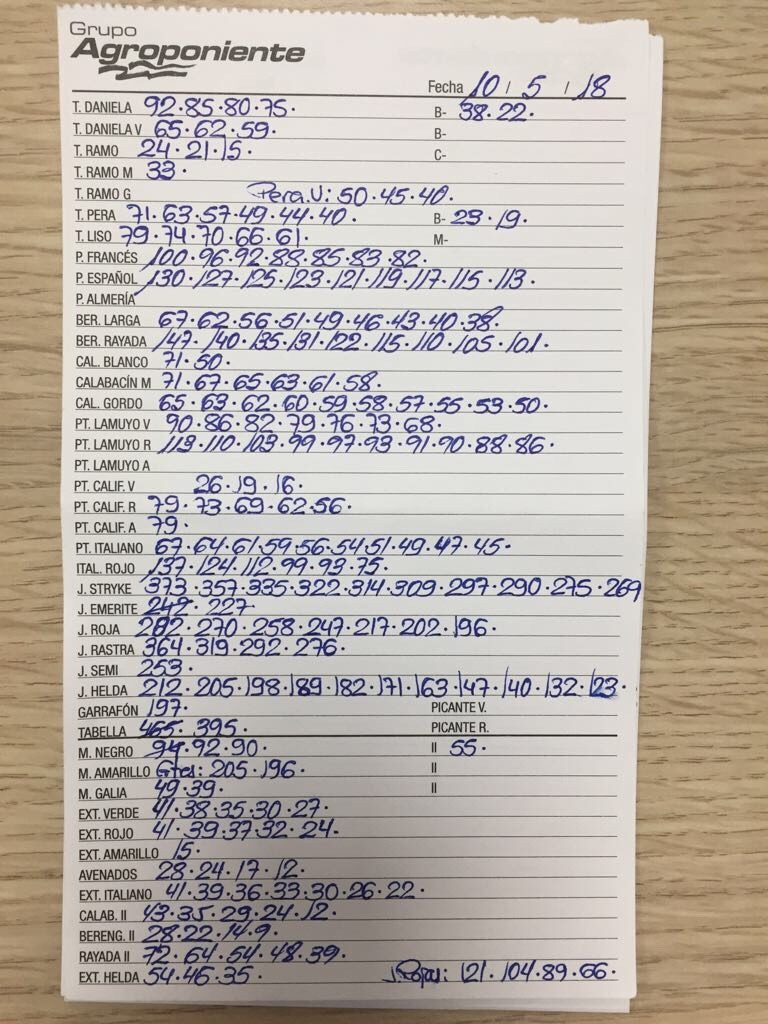 Grupo
Agroponiente
Fecha 10 / 5 / 18
T. DANIELA 92·85·80·75· B- 38·22·
T. DANIELA V 65·62·59· B-
T. RAMO 24·21·15· C-
T. RAMO M 33·
T. RAMO G Pera.V: 50·45·40·
T. PERA 71·63·57·49·44·40· B- 23·19·
T. LISO 79·74·70·66·61· M-
P. FRANCÉS 100·96·92·88·85·83·82·
P. ESPAÑOL 130·127·125·123·121·119·117·115·113·
P. ALMERÍA
BER. LARGA 67·62·56·51·49·46·43·40·38·
BER. RAYADA 147·140·135·131·122·115·110·105·101·
CAL. BLANCO 71·50·
CALABACÍN M 71·67·65·63·61·58·
CAL. GORDO 65·63·62·60·59·58·57·55·53·50·
PT. LAMUYO V 90·86·82·79·76·73·68·
PT. LAMUYO R 113·110·103·99·97·93·91·90·88·86·
PT. LAMUYO A
PT. CALIF. V 26·19·16·
PT. CALIF. R 79·73·69·62·56·
PT. CALIF. A 79·
PT. ITALIANO 67·64·61·59·56·54·51·49·47·45·
ITAL. ROJO 137·124·112·99·93·75·
J. STRYKE 373·357·335·322·314·309·297·290·275·269
J. EMERITE 242·227
J. ROJA 282·270·258·247·217·202·196·
J. RASTRA 364·319·292·276·
J. SEMI 253·
J. HELDA 212·205·198·189·182·171·163·147·140·132·123·
GARRAFÓN 197· PICANTE V.
TABELLA 465·395· PICANTE R.
M. NEGRO 94·92·90· II 55·
M. AMARILLO Gtes: 205·196· II
M. GALIA 49·39· II
EXT. VERDE 41·38·35·30·27·
EXT. ROJO 41·39·37·32·24·
EXT. AMARILLO 15·
AVENADOS 28·24·17·12·
EXT. ITALIANO 41·39·36·33·30·26·22·
CALAB. II 43·35·29·24·12·
BERENG. II 28·22·14·9·
RAYADA II 72·64·54·48·39·
EXT. HELDA 54·46·35· 121·104·89·66·